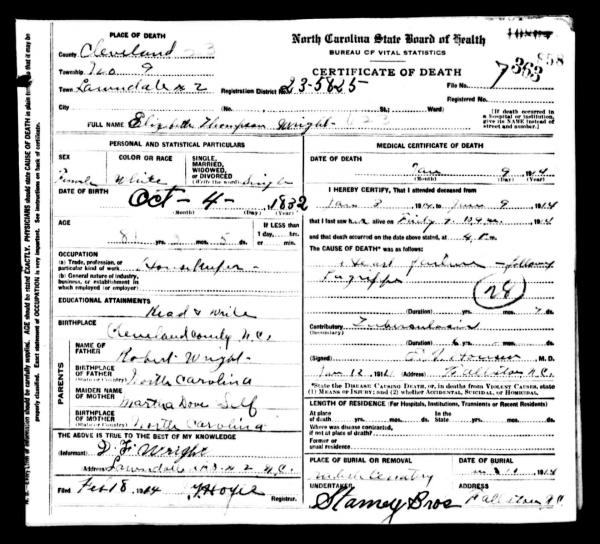 PLACE OF DEATH
County Cleveland 23
Township No. 9
Town Lawndale
City (No. St.; Ward)
North Carolina State Board of Health
BUREAU OF VITAL STATISTICS
CERTIFICATE OF DEATH
Registration District No. 23-5825
File No. 7 363 858
Registered No.
[If death occurred in a hospital or institution, give its NAME instead of street and number.]
FULL NAME Elizabeth Thompson Wright
PERSONAL AND STATISTICAL PARTICULARS
SEX Female
COLOR OR RACE White
SINGLE, MARRIED, WIDOWED, OR DIVORCED (Write the word) Single
DATE OF BIRTH Oct - 4 - 1832
(Month) (Day) (Year)
AGE 81 yrs. 3 mos. 5 ds.
If LESS than 1 day, hrs. or min.
OCCUPATION
(a) Trade, profession, or particular kind of work Housekeeper
(b) General nature of industry, business, or establishment in which employed (or employer)
EDUCATIONAL ATTAINMENTS
Read & Write
BIRTHPLACE
Cleveland County N.C.
PARENTS
NAME OF FATHER Robert Wright
BIRTHPLACE OF FATHER (State or Country) North Carolina
MAIDEN NAME OF MOTHER Martha Dove Self
BIRTHPLACE OF MOTHER (State or Country) North Carolina
THE ABOVE IS TRUE TO THE BEST OF MY KNOWLEDGE
(Informant) D. F. Wright
Address Lawndale N.C.
Filed Feb 18, 1914 Hoyle Registrar.
MEDICAL CERTIFICATE OF DEATH
DATE OF DEATH
Jan 9 1914
(Month) (Day) (Year)
I HEREBY CERTIFY, That I attended deceased from
Jan 3 1914 to Jan 9 1914
that I last saw her alive on 1914
and that death occurred on the date above stated, at 4 P.m.
The CAUSE OF DEATH* was as follows:
Heart failure - following
Lagrippe
28
(Duration) yrs. mos. 7 ds.
Contributory Tuberculosis
(Duration) 6 yrs. mos. ds.
(Signed) Houser M.D.
Jan 12, 1914 (Address) Fallston N.C.
*State the DISEASE CAUSING DEATH, or, in deaths from VIOLENT CAUSES, state (1) MEANS OF INJURY; and (2) whether ACCIDENTAL, SUICIDAL, OR HOMICIDAL.
LENGTH OF RESIDENCE (For Hospitals, Institutions, Transients or Recent Residents)
At place of death yrs. mos. ds. In the State yrs. mos. ds.
Where was disease contracted, if not at place of death?
Former or usual residence
PLACE OF BURIAL OR REMOVAL
DATE OF BURIAL
1914
UNDERTAKER Stamey Bros
ADDRESS Fallston N.C.